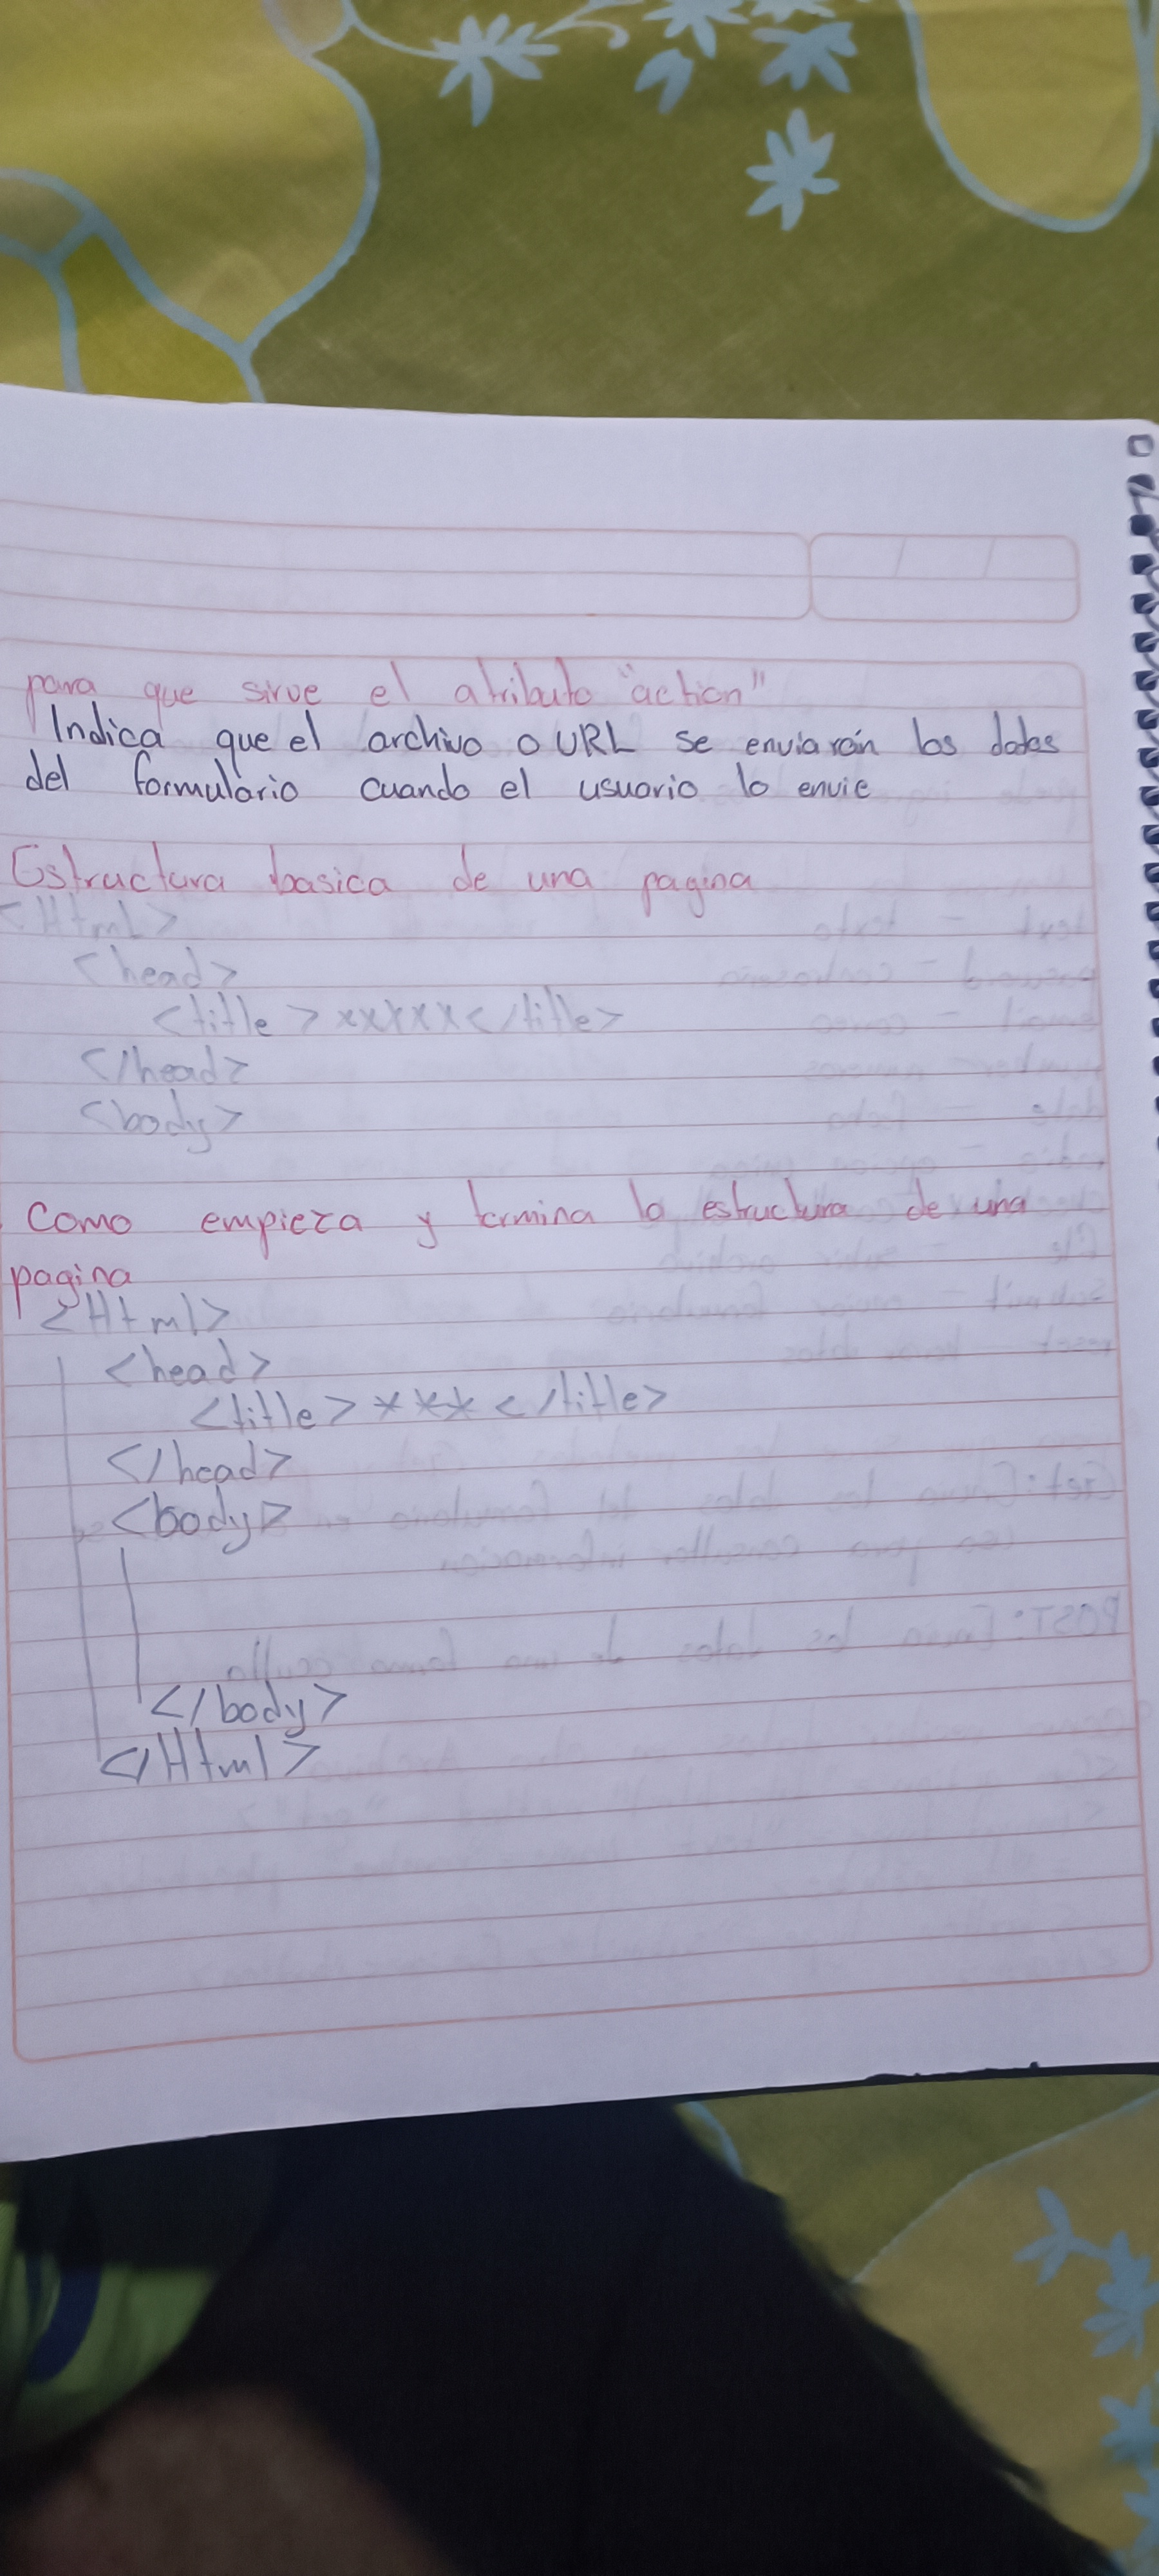 para que sirve el atributo "action"
Indica que el archivo o URL se enviarón los datos
del formulario cuando el usuario lo envie
Estructura basica de una pagina
<Html>
<head>
<title>xxxxx</title>
</head>
<body>
Como empieza y termina la estructura de una
pagina
<Html>
<head>
<title>***</title>
</head>
<body>
</body>
</Html>